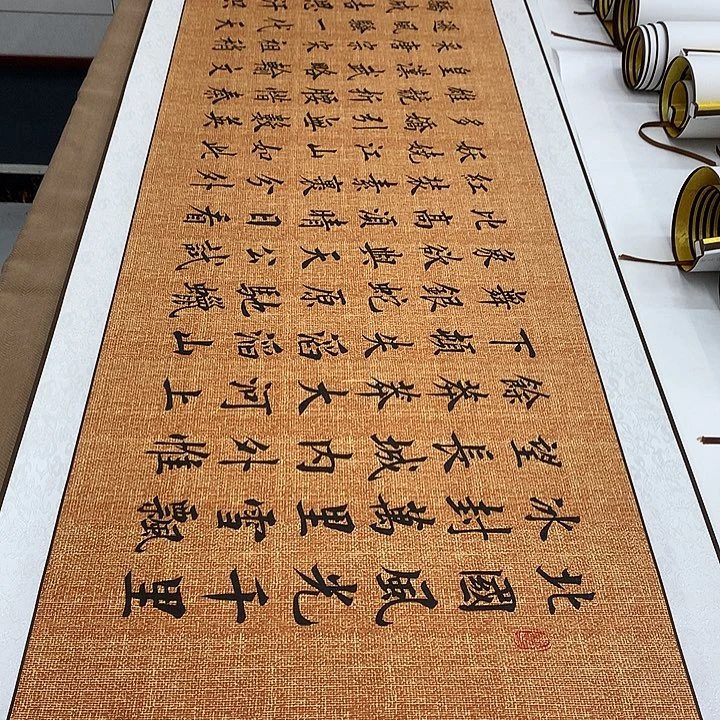 北國風光千里
冰封萬里雪飄
望長城内外惟
餘莽莽大河上
下頓失滔滔山
舞銀蛇原馳蠟
象欲與天公試
比高須晴日看
紅裝素裹分外
妖嬈江山如此
多嬌引無數英
雄競折腰惜秦
皇漢武略輸文
采唐宗宋祖稍
遜風騷一代天
驕城吉思汗只